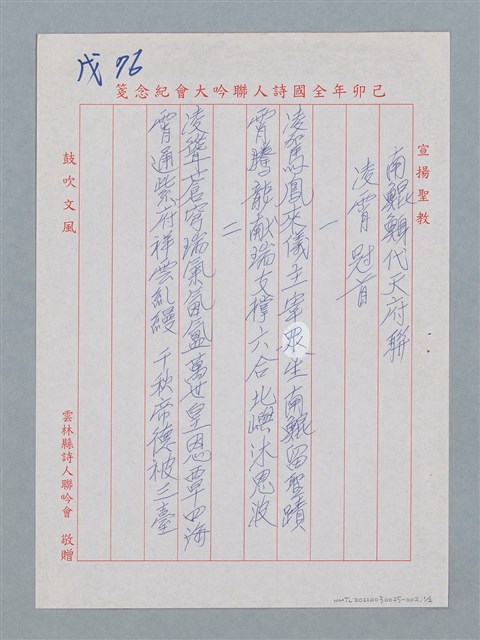 戊 76
己卯年全國詩人聯吟大會紀念箋
宣揚聖教
南鯤鯓代天府聯
凌霄 冠首
一
凌駕鳳來儀主宰眾生南鯤留聖蹟
霄騰龍献瑞支撐六合北嶼沐恩波
二
凌聳蒼穹瑞氣氤氳萬世皇恩覃四海
霄通紫府祥雲糺縵千秋帝德被三臺
鼓吹文風
雲林縣詩人聯吟會 敬贈